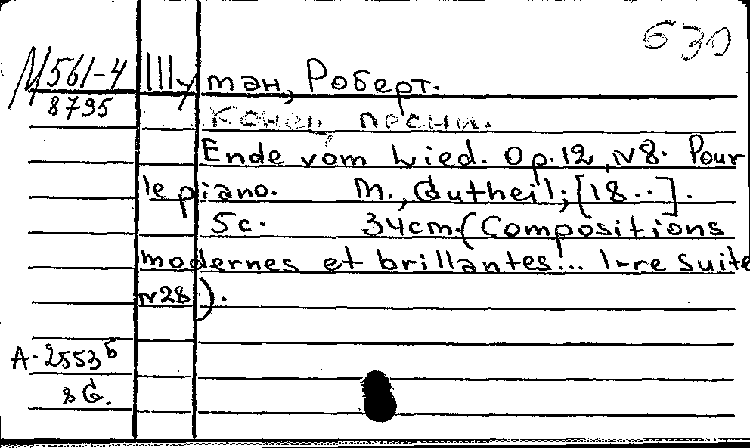 630
М561-4
8795
Шуман, Роберт.
Конец песни.
Ende vom Lied. Op.12, N8. Pour
le piano. М., Gutheil, [18..].
5с. 34cm. (Compositions
modernes et brillantes... 1-re suite
N28).
А-2553б